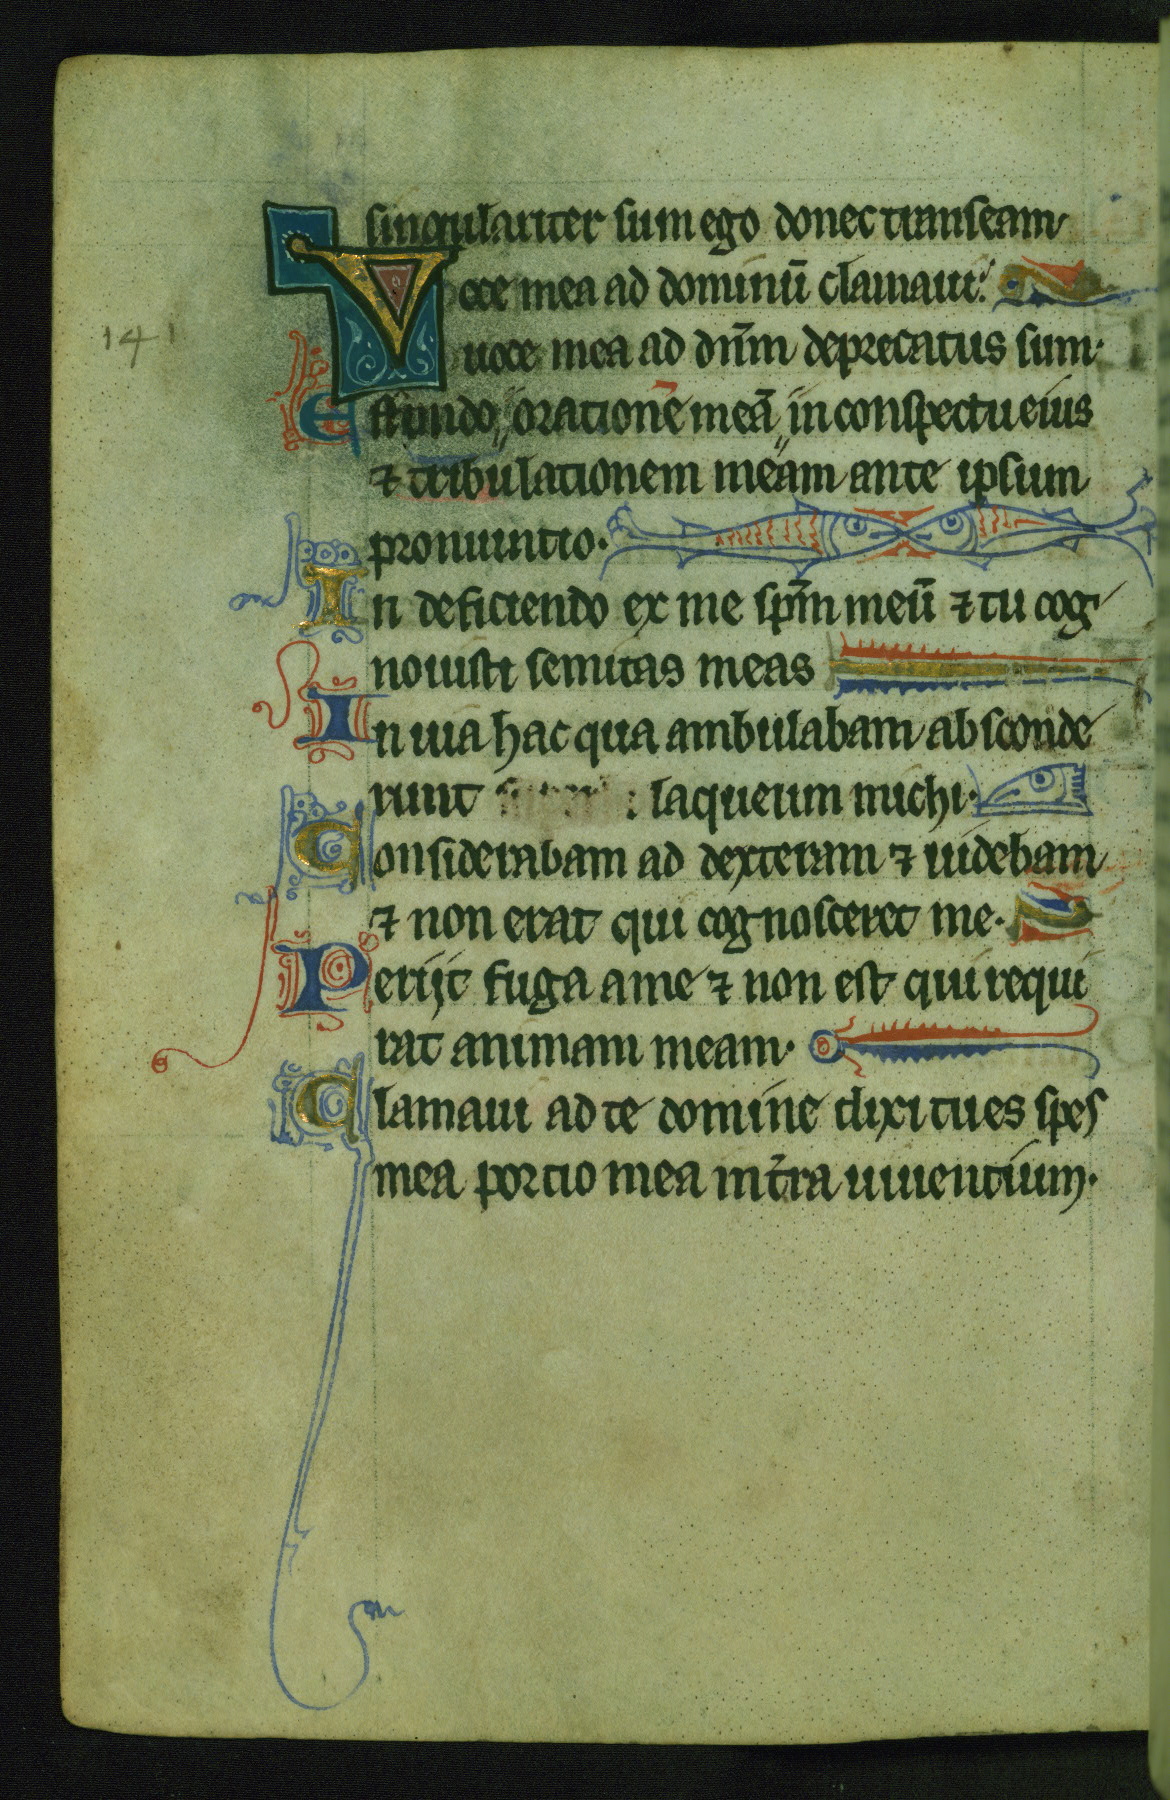 singulariter sum ego donec transeam
Voce mea ad dominū clamaui:
141
uoce mea ad dn̄m deprecatus sum·
Effundo oratione meā in conspectu eius
⁊ tribulationem meam ante ipsum
pronuntio·
In deficiendo ex me sp̄m meū ⁊ tu cog
nouisti semitas meas
In uia hac qua ambulabam absconde
runt laqueum michi·
Considerabam ad dexteram ⁊ uidebam
⁊ non erat qui cognosceret me·
Perijt fuga a me ⁊ non est qui requi
rat animam meam·
Clamaui ad te domine dixi tu es spes
mea portio mea in t̄ra uiuentium·